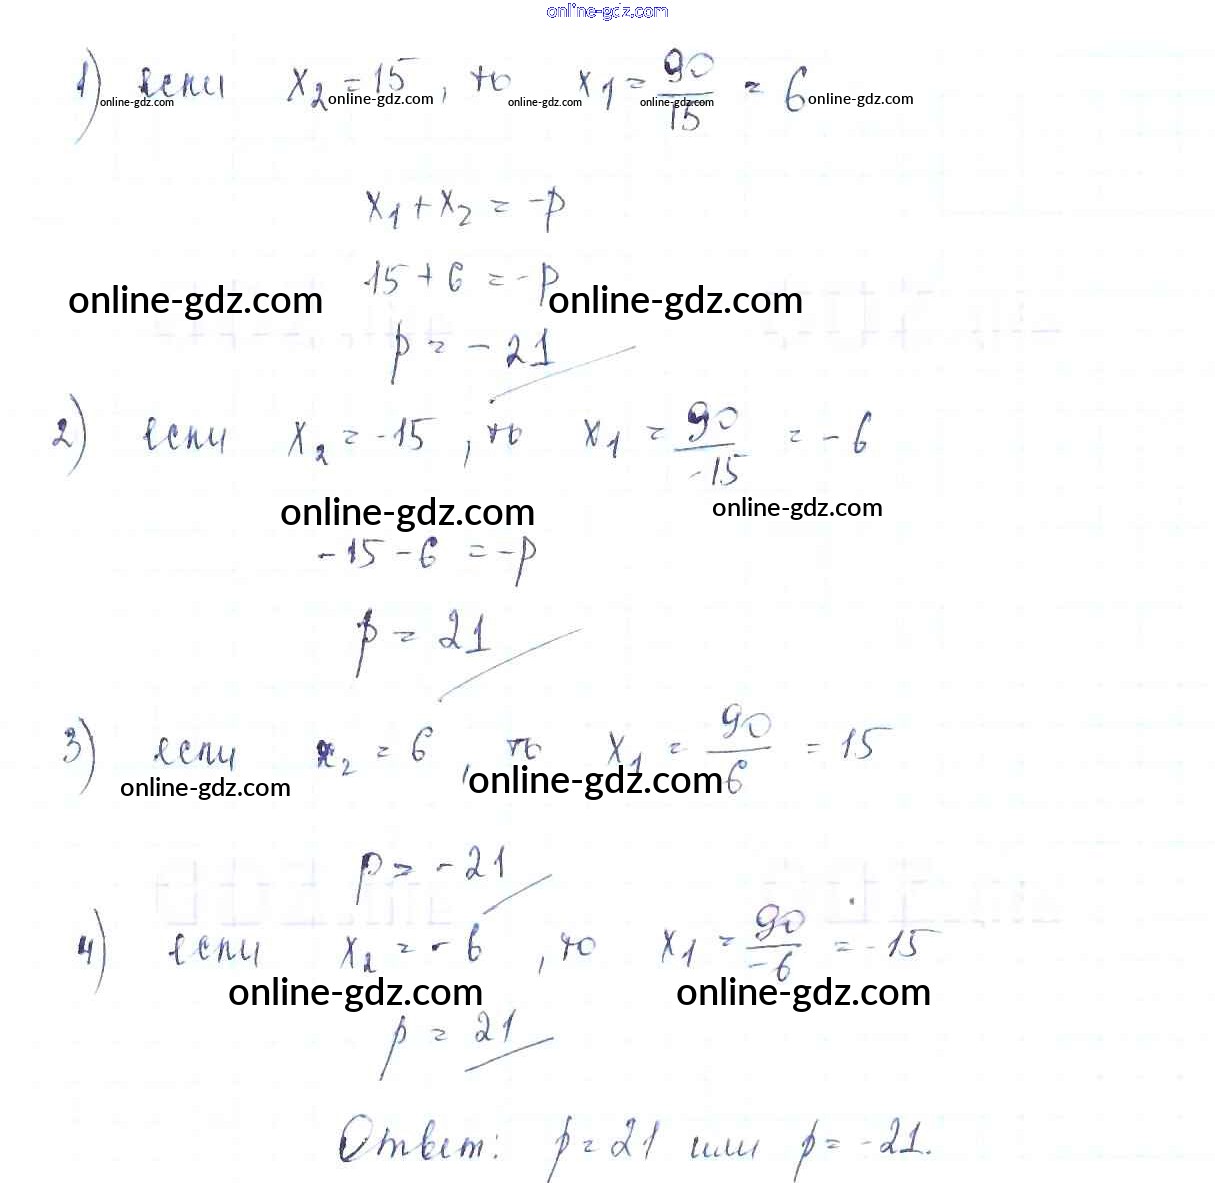 online-gdz.com
1) если x₂ = 15, то x₁ = 90/15 = 6
online-gdz.com online-gdz.com online-gdz.com online-gdz.com online-gdz.com
x₁ + x₂ = -p
15 + 6 = -p
online-gdz.com online-gdz.com
p = - 21
2) если x₂ = -15, то x₁ = 90/-15 = - 6
online-gdz.com online-gdz.com
-15 - 6 = -p
p = 21
3) если x₂ = 6, то x₁ = 90/6 = 15
online-gdz.com online-gdz.com
p = - 21
4) если x₂ = - 6, то x₁ = 90/-6 = - 15
online-gdz.com online-gdz.com
p = 21
Ответ: p = 21 или p = -21.